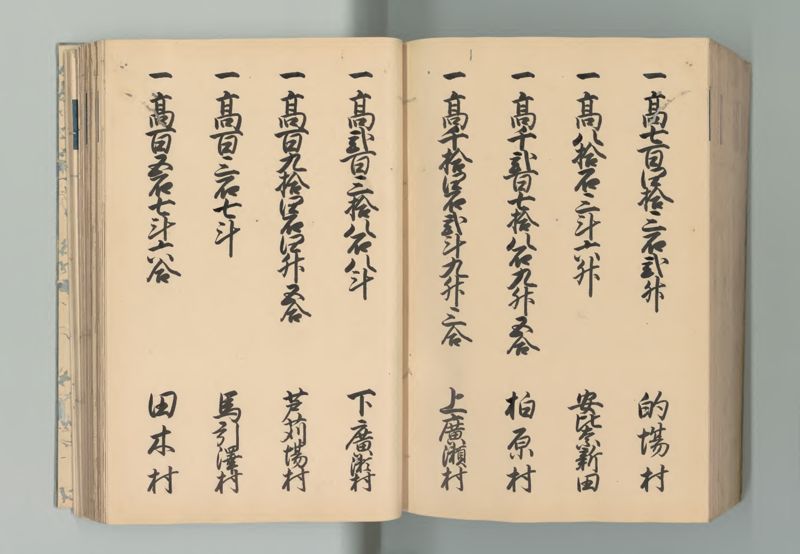 一 高七百四拾三石弐升 的場村
一 高八拾石三斗六升 安比奈新田
一 高千弐百七拾八石九升五合 柏原村
一 高千拾四石弐斗九升三合 上廣瀬村
一 高弐百三拾八石八斗 下廣瀬村
一 高百九拾四石四升五合 芦苅場村
一 高百三石七斗 馬引澤村
一 高百五石七斗六合 田木村